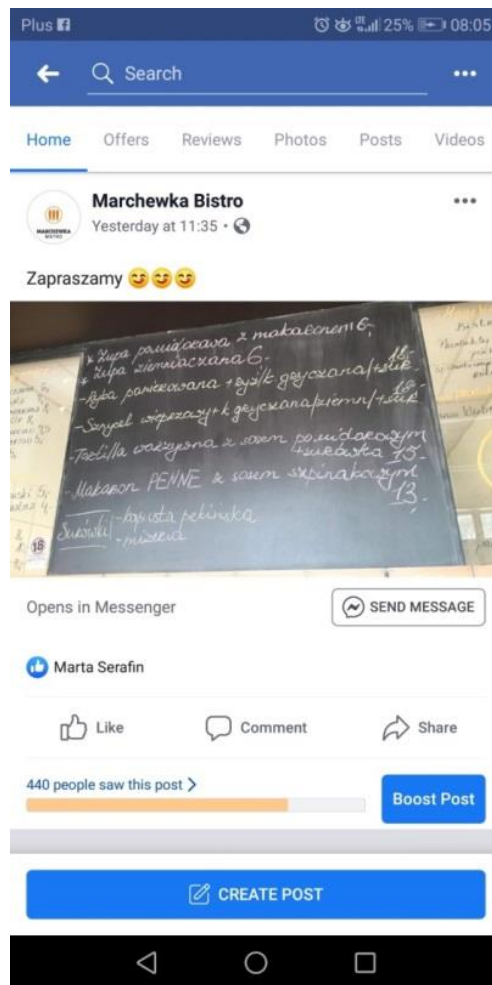 Plus
25% 08:05
Search
Home Offers Reviews Photos Posts Videos
MARCHEWKA
BISTRO
Marchewka Bistro
Yesterday at 11:35
Zapraszamy
* Zupa pomidorowa z makaronem 6,-
* Zupa ziemniaczana 6.-
- Ryba panierowana + ryż/k gryczana/+sur. 18.-
- Sznycel wieprzowy + k gryczana/ziemn/+sur 18.-
- Tortilla warzywna z sosem pomidorowym
+surówka 15.-
- Makaron PENNE z sosem szpinakowym
13.-
Surówki - kapusta pekińska
- mizeria
18
Opens in Messenger
SEND MESSAGE
Marta Serafin
Like Comment Share
440 people saw this post
Boost Post
CREATE POST